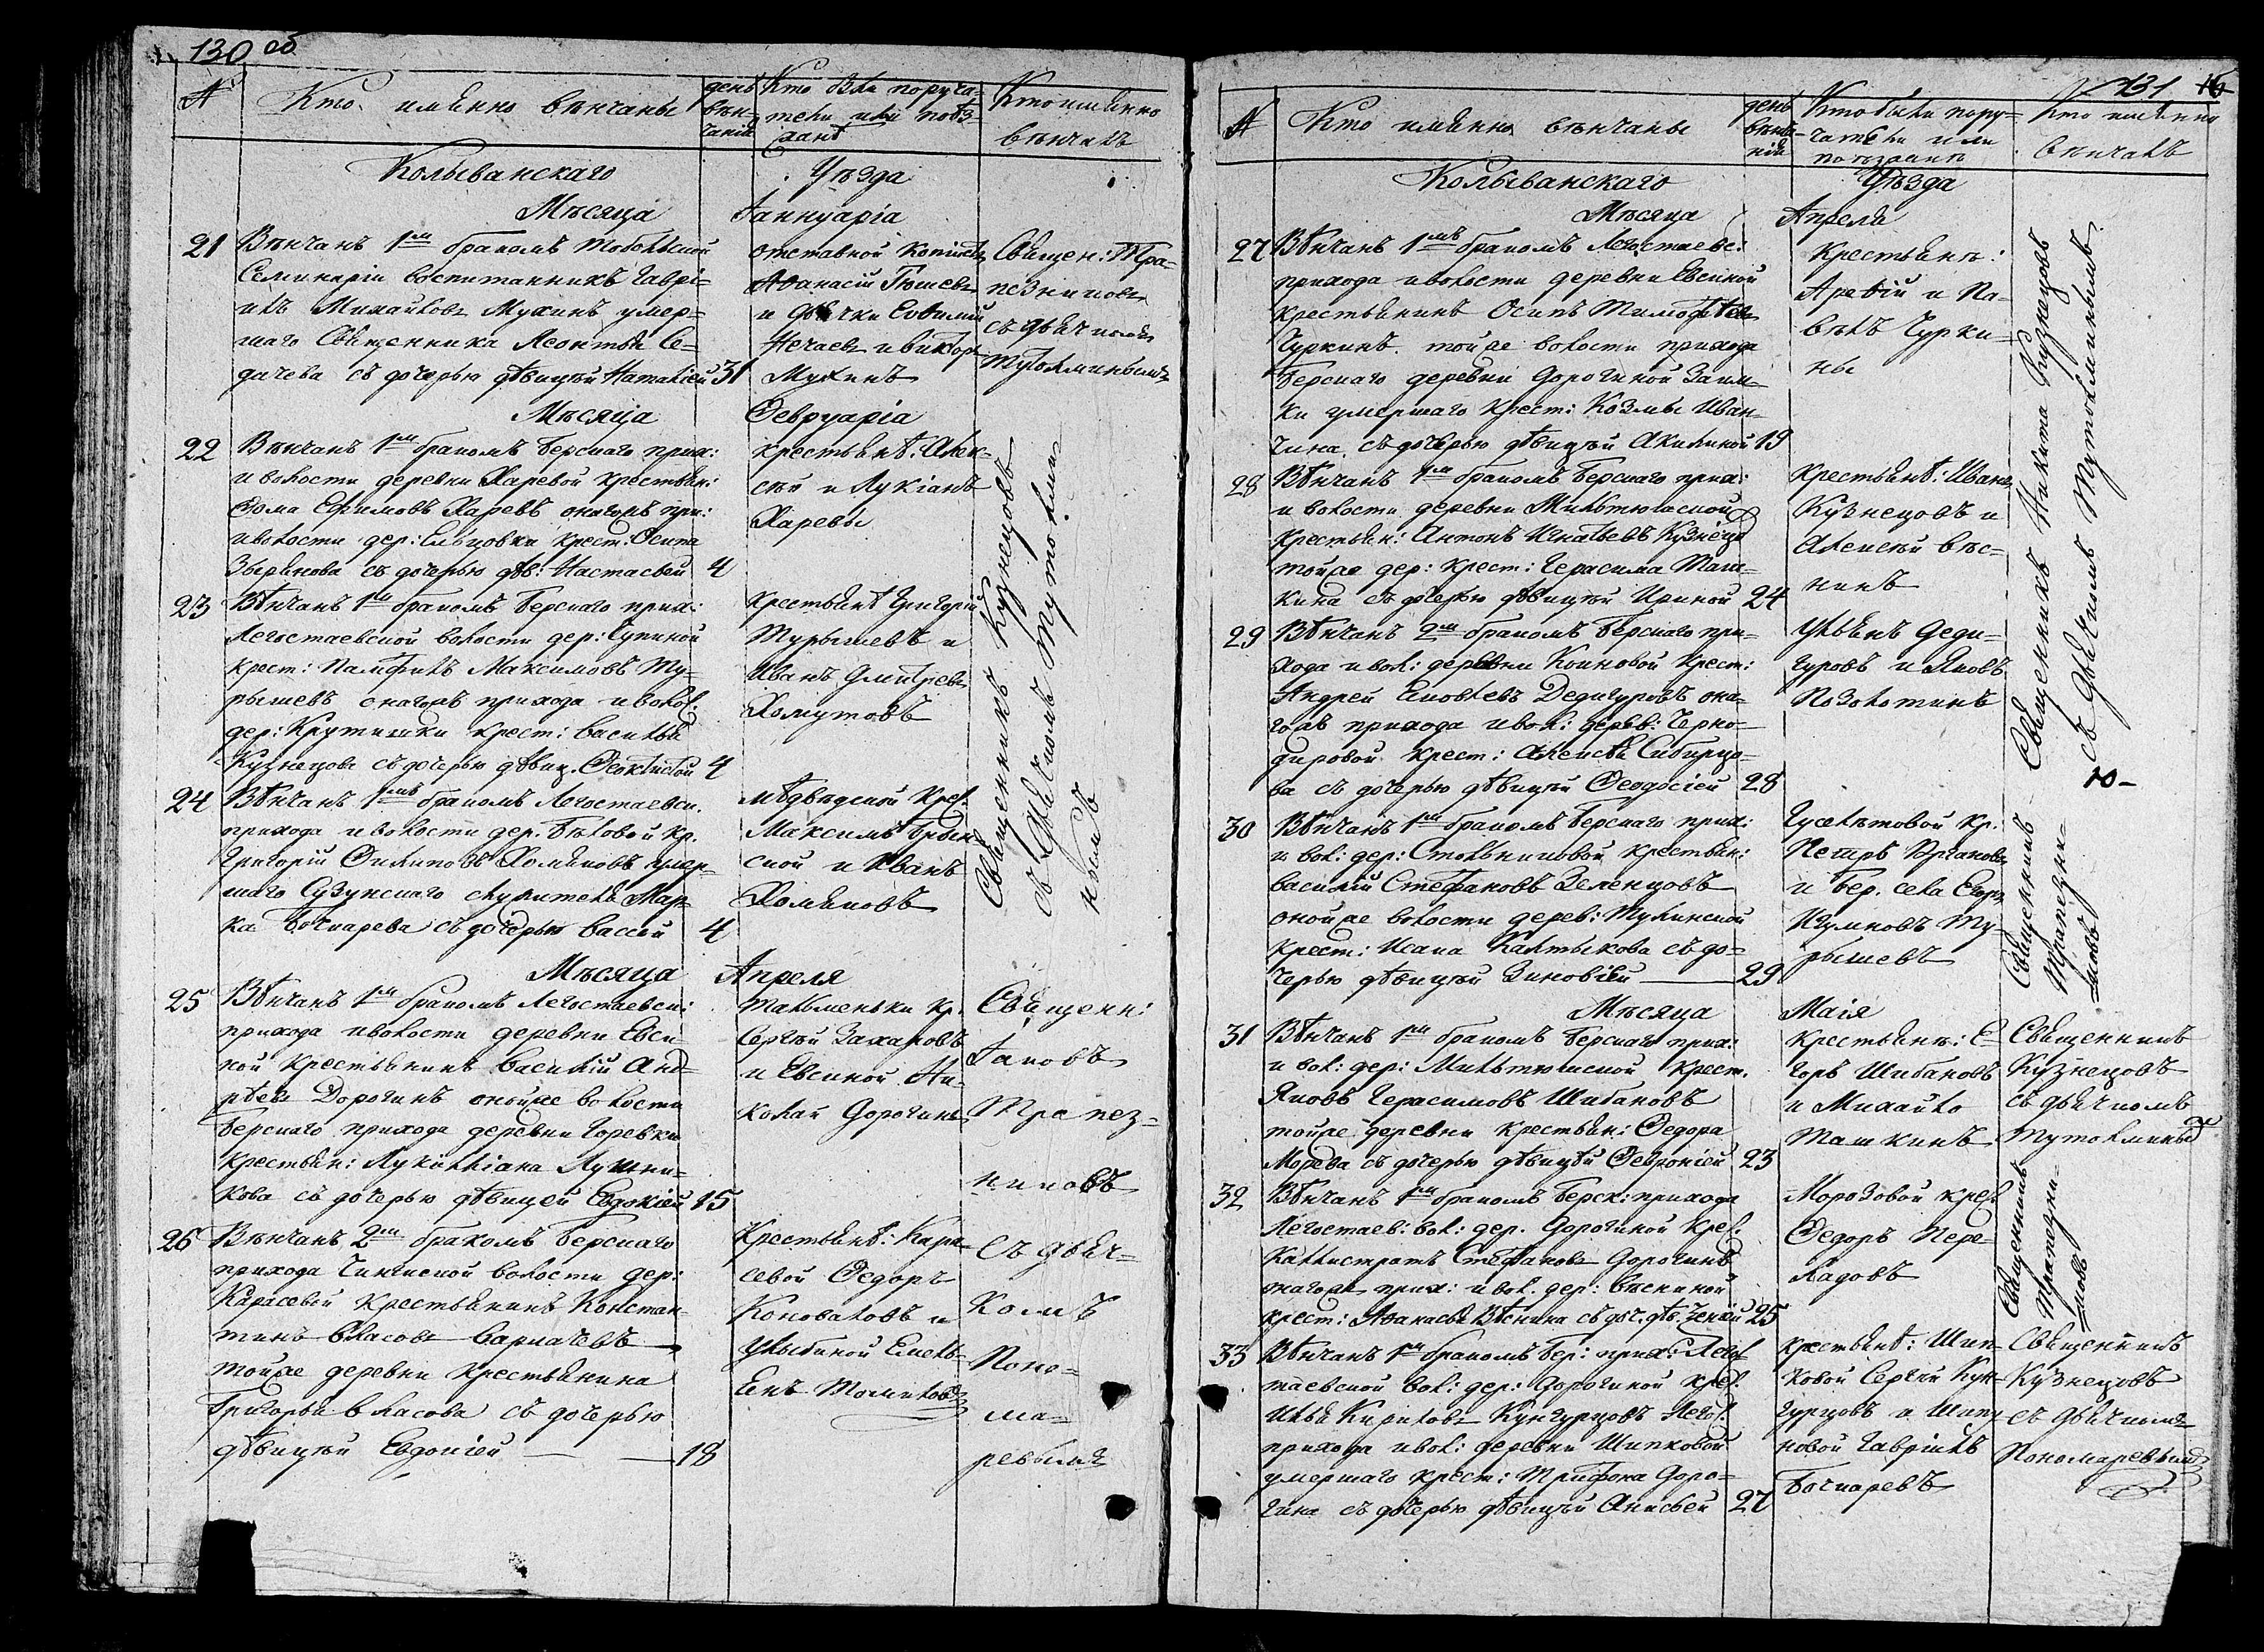 130 об
№
Кто именно венчаны
день венчаній
Кто были поручатели или поѣзжанѣ
Кто именно венчалъ
Колыванскаго Уѣзда
Мѣсяца Іаннуаріа
21
Вѣнчанъ 1мъ бракомъ Тобольской
Семинаріи воспитанникъ Гаврі-
илъ Михайловъ Мухинъ умер-
шаго Священника Леонтья Се-
дачева съ дочерью дѣвицѣй Наталіей 31
отставной копіистъ
Афанасій Гюшевъ
и дьячки Евфимій
Нечаевъ и викторъ
Мухинъ
Священ: Тра-
пезниковъ
съ дьячкомъ
Тутолминымъ
Мѣсяца Февруаріа
22
Вѣнчанъ 1мъ бракомъ Берскаго прих:
и волости деревни Харевой крестьян:
Фома Ефимовъ Харевъ онагожъ при:
и волости дер: Ельцовки крест: Осипа
Зырянова съ дочерью дѣв: Настасьей 4
крестьянѣ: Алек-
сѣй и Лукіанъ
Харевы
23
Вѣнчанъ 1мъ бракомъ Берскаго прих:
Легостаевской волости дер: Гупиной
крест: Памфилъ Максимовъ Ту-
рышевъ онагожъ прихода и волос:
дер: Крутишки крест: Василья
Кузнецова съ дочерью дѣвиц. Феоктистой 4
Крестьянѣ Григорій
Турышевъ и
Иванъ Дмитрев
Хомутовъ
24
Вѣнчанъ 1мъ бракомъ Легостаевск.
прихода и волости дер. Бѣловой кр.
Григорій Филиповъ Хомяковъ умер-
шаго Сузунскаго служителя Мар-
ка Бочкарева съ дочерью Вассой 4
Мѣдвѣдской крес.
Максимъ
ской и Иванъ
Хомяковъ
Священникъ Кузнецовъ
съ дьячкомъ Тутолми-
нымъ
Мѣсяца Апреля
25
Вѣнчанъ 1мъ бракомъ Легостаевск:
прихода и волости деревни Евси-
ной крестьянинъ Василій Анд-
рѣевъ Дорогинъ онойже волости
Берскаго прихода деревни Горевки
Крестьян: Лукилліана Лушни-
кова съ дочерью дѣвицей Евдокіей 15
Тальменки кр.
Сергѣй Захаровъ
и Евсиной Ни-
колай Дорогинъ
26
Вѣнчанъ 2мъ бракомъ Берскаго
прихода Чингиской волости дер:
Карасевой крестьянинъ Констан-
тинъ Власовъ Варначевъ
тойже деревни Крестьянина
Григорья Власова съ дочерью
дѣвицѣй Евдокіей 18
Крестьянѣ: Кара-
севой Федоръ
Коноваловъ и
Улыбиной Емель-
янъ Томиловъ
Священн:
Іаковъ
Трапез-
никовъ
съ дьяч-
комъ
Поно-
ма-
ревымъ
131
№
Кто именно вѣнчаны
день вѣнчаній
Кто были пору-
чатели или
поѣзжанѣ
Кто именно
вѣнчалъ
Колыванскаго Уѣзда
Мѣсяца Апреля
27
Вѣнчанъ 1мъ бракомъ Легостаевс:
прихода и волости деревни Евсиной
крестьянинъ Осипъ Тимофѣевъ
Чуркинъ. тойже волости прихода
Берскаго деревни Дорогиной Заим-
ки умершаго Крест: Козмы Иван-
чина, съ дочерью дѣвицѣй Акилиной 19
Крестьянѣ:
Арефій и Па-
вѣлъ Чурки-
ны
28
Вѣнчанъ 1мъ бракомъ Берскаго прих:
и волости деревни Мильтюшской
Крестьян: Антонъ Игнатьевъ Кузнецов
тойже дер: крест: Герасима Таш-
кина съ дочерью дѣвицѣй Ириной 24
Крестьянѣ: Иванъ
Кузнецовъ и
Алексѣй Вяс-
нинъ
29
Вѣнчанъ 2мъ бракомъ Берскаго при-
хода и вол: деревни Коиновой Крест:
Андрей Яковлевъ Дедигуровъ она-
гожъ прихода и вол: дерев: Черно-
дировой крест: Алексѣя Сибирцо-
ва съ дочерью дѣвицѣй Феодосіей 28
Ульянъ Деди-
гуровъ и Яковъ
Позолотинъ
Священникъ Никита Кузнецовъ
съ дьячкомъ Тутолминымъ
10-
30
Вѣнчанъ 1мъ бракомъ Берскаго прих:
и вол: дер: Стольниковой Крестьян:
Василій Стефановъ Зеленцовъ
онойже волости дерев: Тулинской
крест: Исака Калтыкова съ до-
черью дѣвицѣй Зиновіей 29
Гуселѣтовой кр.
Петръ
и Бер. села Егоръ
Игумновъ Ту-
рышевъ
Священникъ
Трапезни-
ковъ
Мѣсяца Маія
31
Вѣнчанъ 1мъ бракомъ Берскаго прих:
и вол: дер: Мильтюшской крест.
Яковъ Герасимовъ Шибановъ
тойже деревни крестьян: Федора
Морева съ дочерью дѣвицѣй Февроніей 23
Крестьянѣ: Е-
горъ Шибановъ
и Михайло
Ташкинъ
Священникъ
Кузнецовъ
съ дьячкомъ
Тутолминым
32
Вѣнчанъ 1мъ бракомъ Берск: прихода
Легостаев: вол: дер. Дорогиной крес.
Каллистратъ Стефановъ Дорогинъ
онагожъ прих: и вол. дер: Вяскиной
крест: Афанасья Вяснина съ доч. дѣв. 25
Морозовой крес.
Федоръ Пере-
ладовъ
Священникъ
Трапезни-
ковъ
33
Вѣнчанъ 1мъ бракомъ Бер: прих: Легос-
таевской вол: дер: Дорогиной крес.
Илья Кириловъ Кунгурцовъ Легос.
прихода и вол: деревни Шипковой
умершаго крест: Трифона Доро-
гина съ дочерью дѣвицѣй Анисьей 27
крестьянѣ: Шип-
ковой Сергѣй Кун-
гурцовъ и Шипу-
новой Гавріилъ
Бочкаревъ
Священникъ
Кузнецовъ
съ дьячкомъ
Пономаревымъ